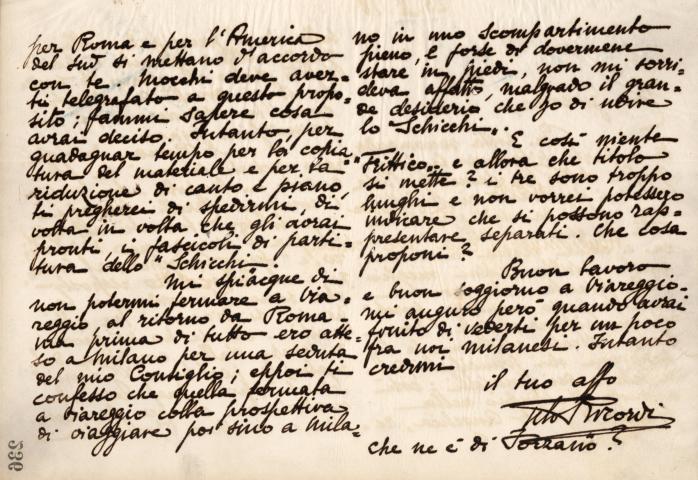 per Roma e per l'America
del Sud si mettano d'accordo
con te. Mocchi deve aver-
ti telegrafato a questo propo-
sito; fammi sapere cosa
avrai deciso. Intanto, per
guadagnar tempo per la copia-
tura del materiale e per la
riduzione di canto e piano,
ti pregherei di spedirmi, di
volta in volta che gli avrai
pronti, i fascicoli di parti-
tura dello "Schicchi".
Mi spiacque di
non potermi fermare a Via-
reggio al ritorno da Roma -
ma prima di tutto ero atte-
so a Milano per una seduta
del mio Consiglio; eppoi ti
confesso che quella fermata
a Viareggio colla prospettiva
di viaggiare poi sino a Mila-
no in uno scompartimento
pieno, e forse di dovermene
stare in piedi, non mi sorri-
deva affatto, malgrado il gran-
de desiderio che ho di udire
lo "Schicchi".
E così niente
"Trittico" e allora che titolo
si mette? i tre sono troppo
lunghi e non vorrei potessero
indicare che si possono rap-
presentare separati. Che cosa
proponi?
Buon lavoro
e buon soggiorno a Viareggio -
mi auguro però quando avrai
finito di vederti per un poco
fra noi milanesi. Intanto
credimi
il tuo affo
Tito Ricordi
che ne è di Forzano?
236